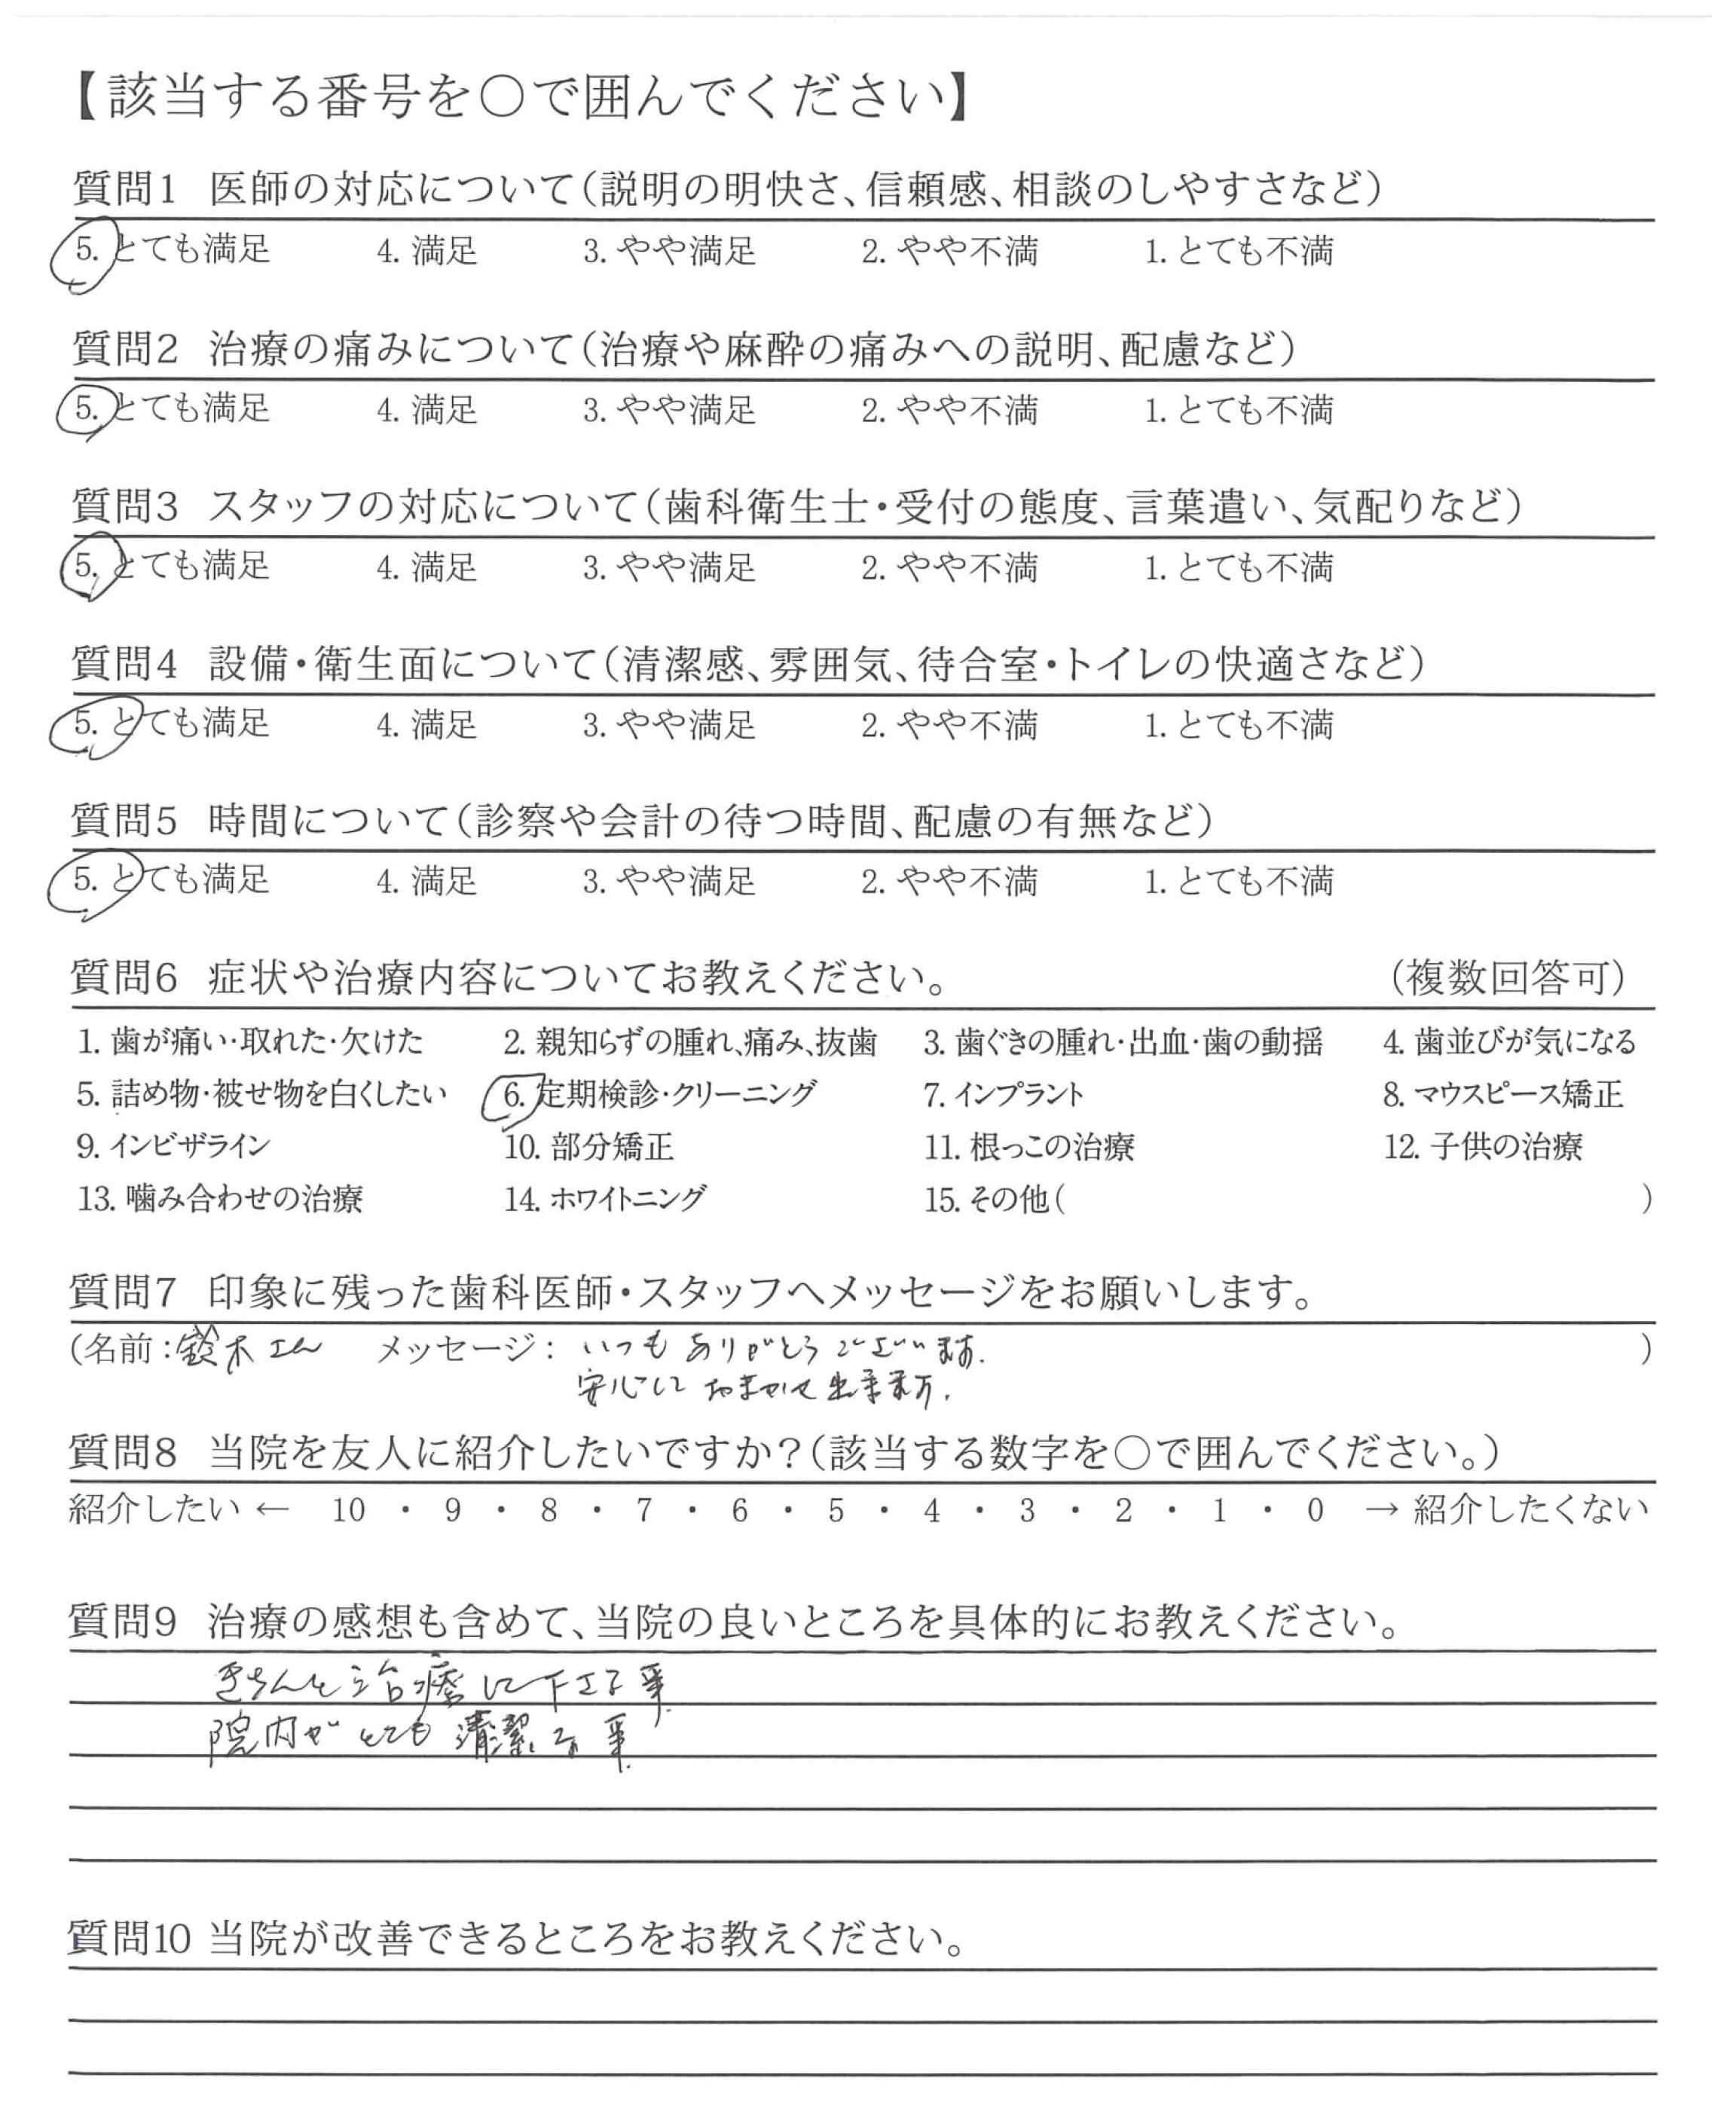 【該当する番号を〇で囲んでください】
質問1 医師の対応について(説明の明快さ、信頼感、相談のしやすさなど)
5. とても満足 4. 満足 3. やや満足 2. やや不満 1. とても不満
質問2 治療の痛みについて(治療や麻酔の痛みへの説明、配慮など)
5. とても満足 4. 満足 3. やや満足 2. やや不満 1. とても不満
質問3 スタッフの対応について(歯科衛生士・受付の態度、言葉遣い、気配りなど)
5. とても満足 4. 満足 3. やや満足 2. やや不満 1. とても不満
質問4 設備・衛生面について(清潔感、雰囲気、待合室・トイレの快適さなど)
5. とても満足 4. 満足 3. やや満足 2. やや不満 1. とても不満
質問5 時間について(診察や会計の待つ時間、配慮の有無など)
5. とても満足 4. 満足 3. やや満足 2. やや不満 1. とても不満
質問6 症状や治療内容についてお教えください。 (複数回答可)
1. 歯が痛い・取れた・欠けた 2. 親知らずの腫れ、痛み、抜歯 3. 歯ぐきの腫れ・出血・歯の動揺 4. 歯並びが気になる
5. 詰め物・被せ物を白くしたい 6. 定期検診・クリーニング 7. インプラント 8. マウスピース矯正
9. インビザライン 10. 部分矯正 11. 根っこの治療 12. 子供の治療
13. 噛み合わせの治療 14. ホワイトニング 15. その他( )
質問7 印象に残った歯科医師・スタッフへメッセージをお願いします。
(名前:鈴木さん メッセージ: いつもありがとうございます. )
安心しておまかせ出来ます.
質問8 当院を友人に紹介したいですか?(該当する数字を〇で囲んでください。)
紹介したい ← 10 ・ 9 ・ 8 ・ 7 ・ 6 ・ 5 ・ 4 ・ 3 ・ 2 ・ 1 ・ 0 → 紹介したくない
質問9 治療の感想も含めて、当院の良いところを具体的にお教えください。
きちんと治療して下さる事.
院内がとても清潔な事.
質問10 当院が改善できるところをお教えください。